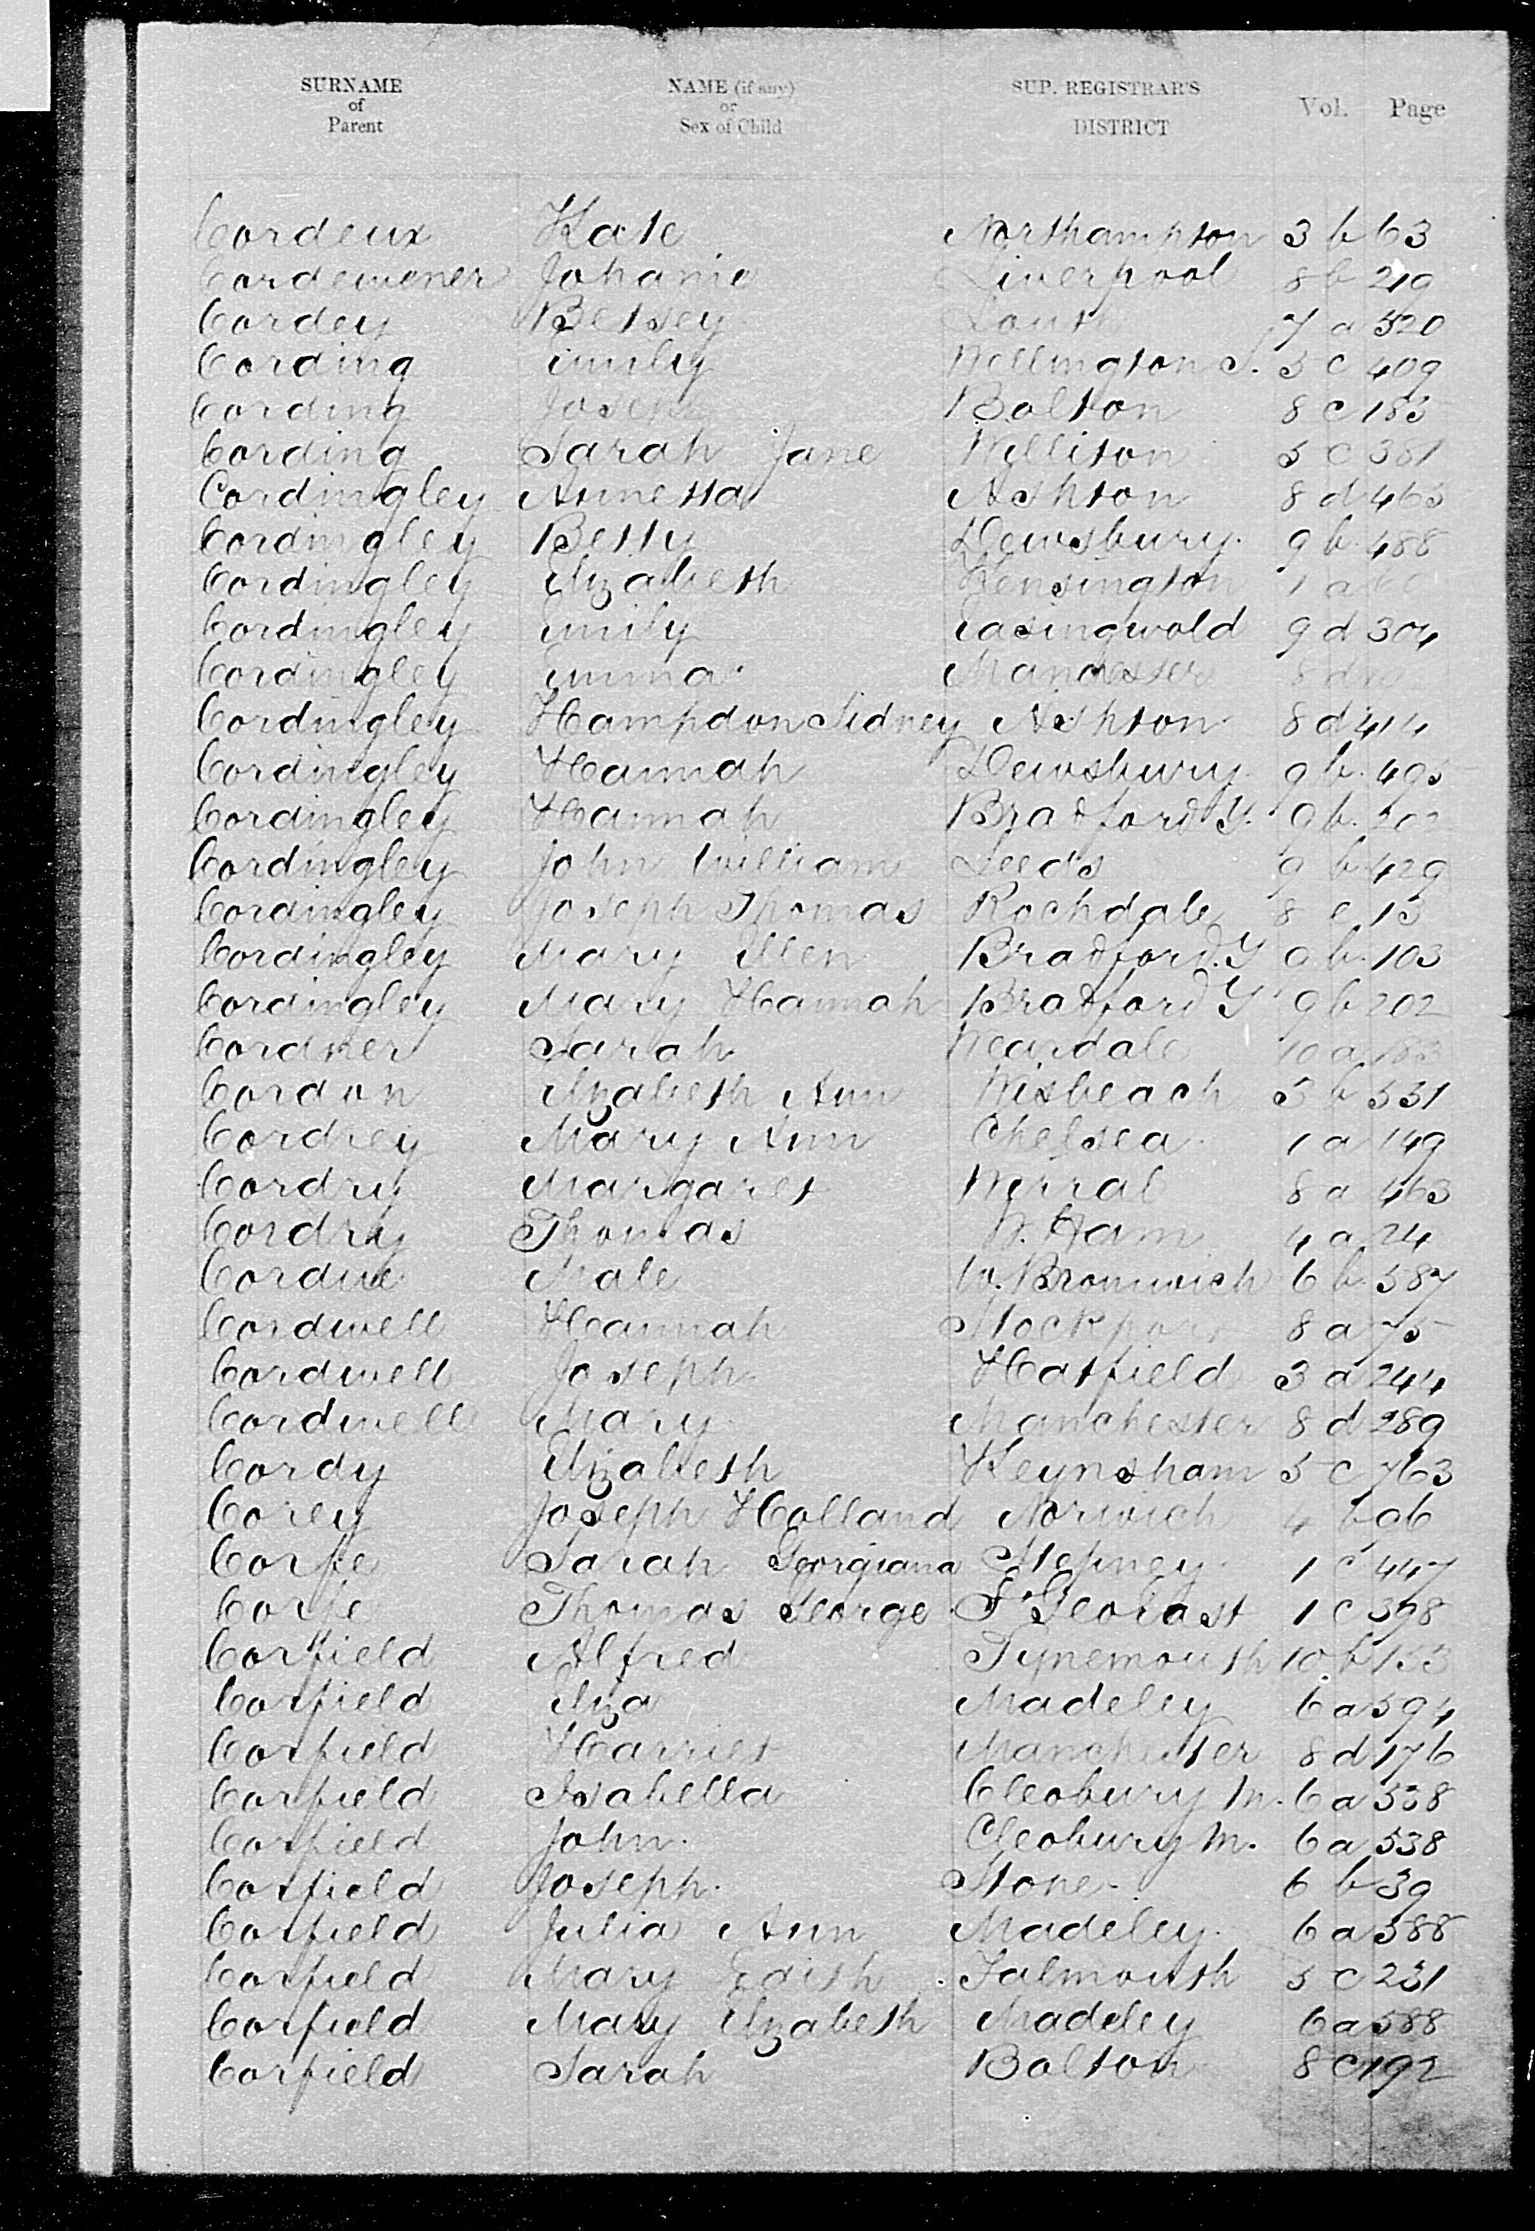 SURNAME of Parent NAME (if any) or Sex of Child SUP. REGISTRAR'S DISTRICT Vol. Page
Cordeux Kate Northampton 3 b 63
Cordewener Johanne Liverpool 8 b 219
Cordey Betsey Louth 7 a 520
Cording Emily Wellington S. 5 c 409
Cording Joseph Bolton 8 c 185
Cording Sarah Jane Williton 5 c 381
Cordingley Annetta Ashton 8 d 465
Cordingley Betty Dewsbury. 9 b. 488
Cordingley Elizabeth Kensington 1 a
Cordingley Emily Easingwold 9 d 304
Cordingley Emma Manchester 8 d
Cordingley Hampdon Sidney Ashton 8 d 414
Cordingley Hannah Dewsbury. 9 b. 495
Cordingley Hannah Bradford Y. 9 b. 202
Cordingley John William Leeds 9 b 429
Cordingley Joseph Thomas Rochdale 8 e 15
Cordingley Mary Ellen Bradford. Y 9 b. 103
Cordingley Mary Hannah Bradford Y 9 b 202
Cordner Sarah Weardale 10 a 183
Cordon Elizabeth Ann Wisbeach 3 b 531
Cordrey Mary Ann Chelsea. 1 a 149
Cordry Margaret Wirral 8 a 463
Cordry Thomas W. Ham 4 a 24
Cordue Male W. Bromwich 6 b. 587
Cordwell Hannah Stockport 8 a 75
Cordwell Joseph Hatfield 3 a 244
Cordwell Mary Manchester 8 d 289
Cordy Elizabeth Keynsham 5 c 763
Corey Joseph Holland Norwich 4 b 96
Corfe Sarah Georgiana Stepney 1 c 447
Corfe Thomas George St Geo East 1 c 398
Corfield Alfred Tynemouth 10 b 153
Corfield Eliza Madeley 6 a 594
Corfield Harriet Manchester 8 d 176
Corfield Isabella Cleobury M. 6 a 538
Corfield John. Cleobury M. 6 a 538
Corfield Joseph. Stone. 6 b 39
Corfield Julia Ann Madeley. 6 a 588
Corfield Mary Edith Falmouth 5 c 231
Corfield Mary Elizabeth Madeley 6 a 588
Corfield Sarah Bolton 8 c 192